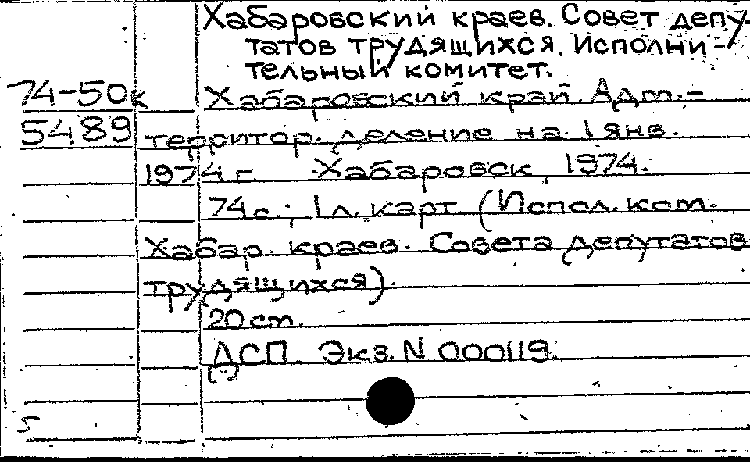 Хабаровский краев. Совет депу-
татов трудящихся. Исполни-
тельный комитет.
74-50к Хабаровский край. Адм.-
5489 территор. деление на 1 янв.
1974 г. Хабаровск, 1974.
74 с.; 1 л. карт. (Испол. ком.
Хабар. краев. Совета депутатов
трудящихся).
20 cm.
ДСП. Экз. N 000119.
5